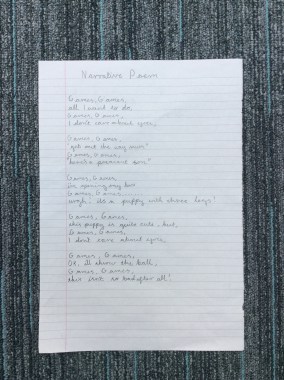 Narrative Poem
Games, Games,
all I want to do
Games, Games,
I don't care about
Games, Games,
'get out the way mum'
Games, Games,
Games, Games
I'm opening my box
Games, Games
argh! its a puppy with three legs!
Games, Games,
this puppy is quite cute, but,
Games, Games,
I don't care about
Games, Games,
Ok, ill throw the ball,
Games, Games,
this isn't so bad after all!